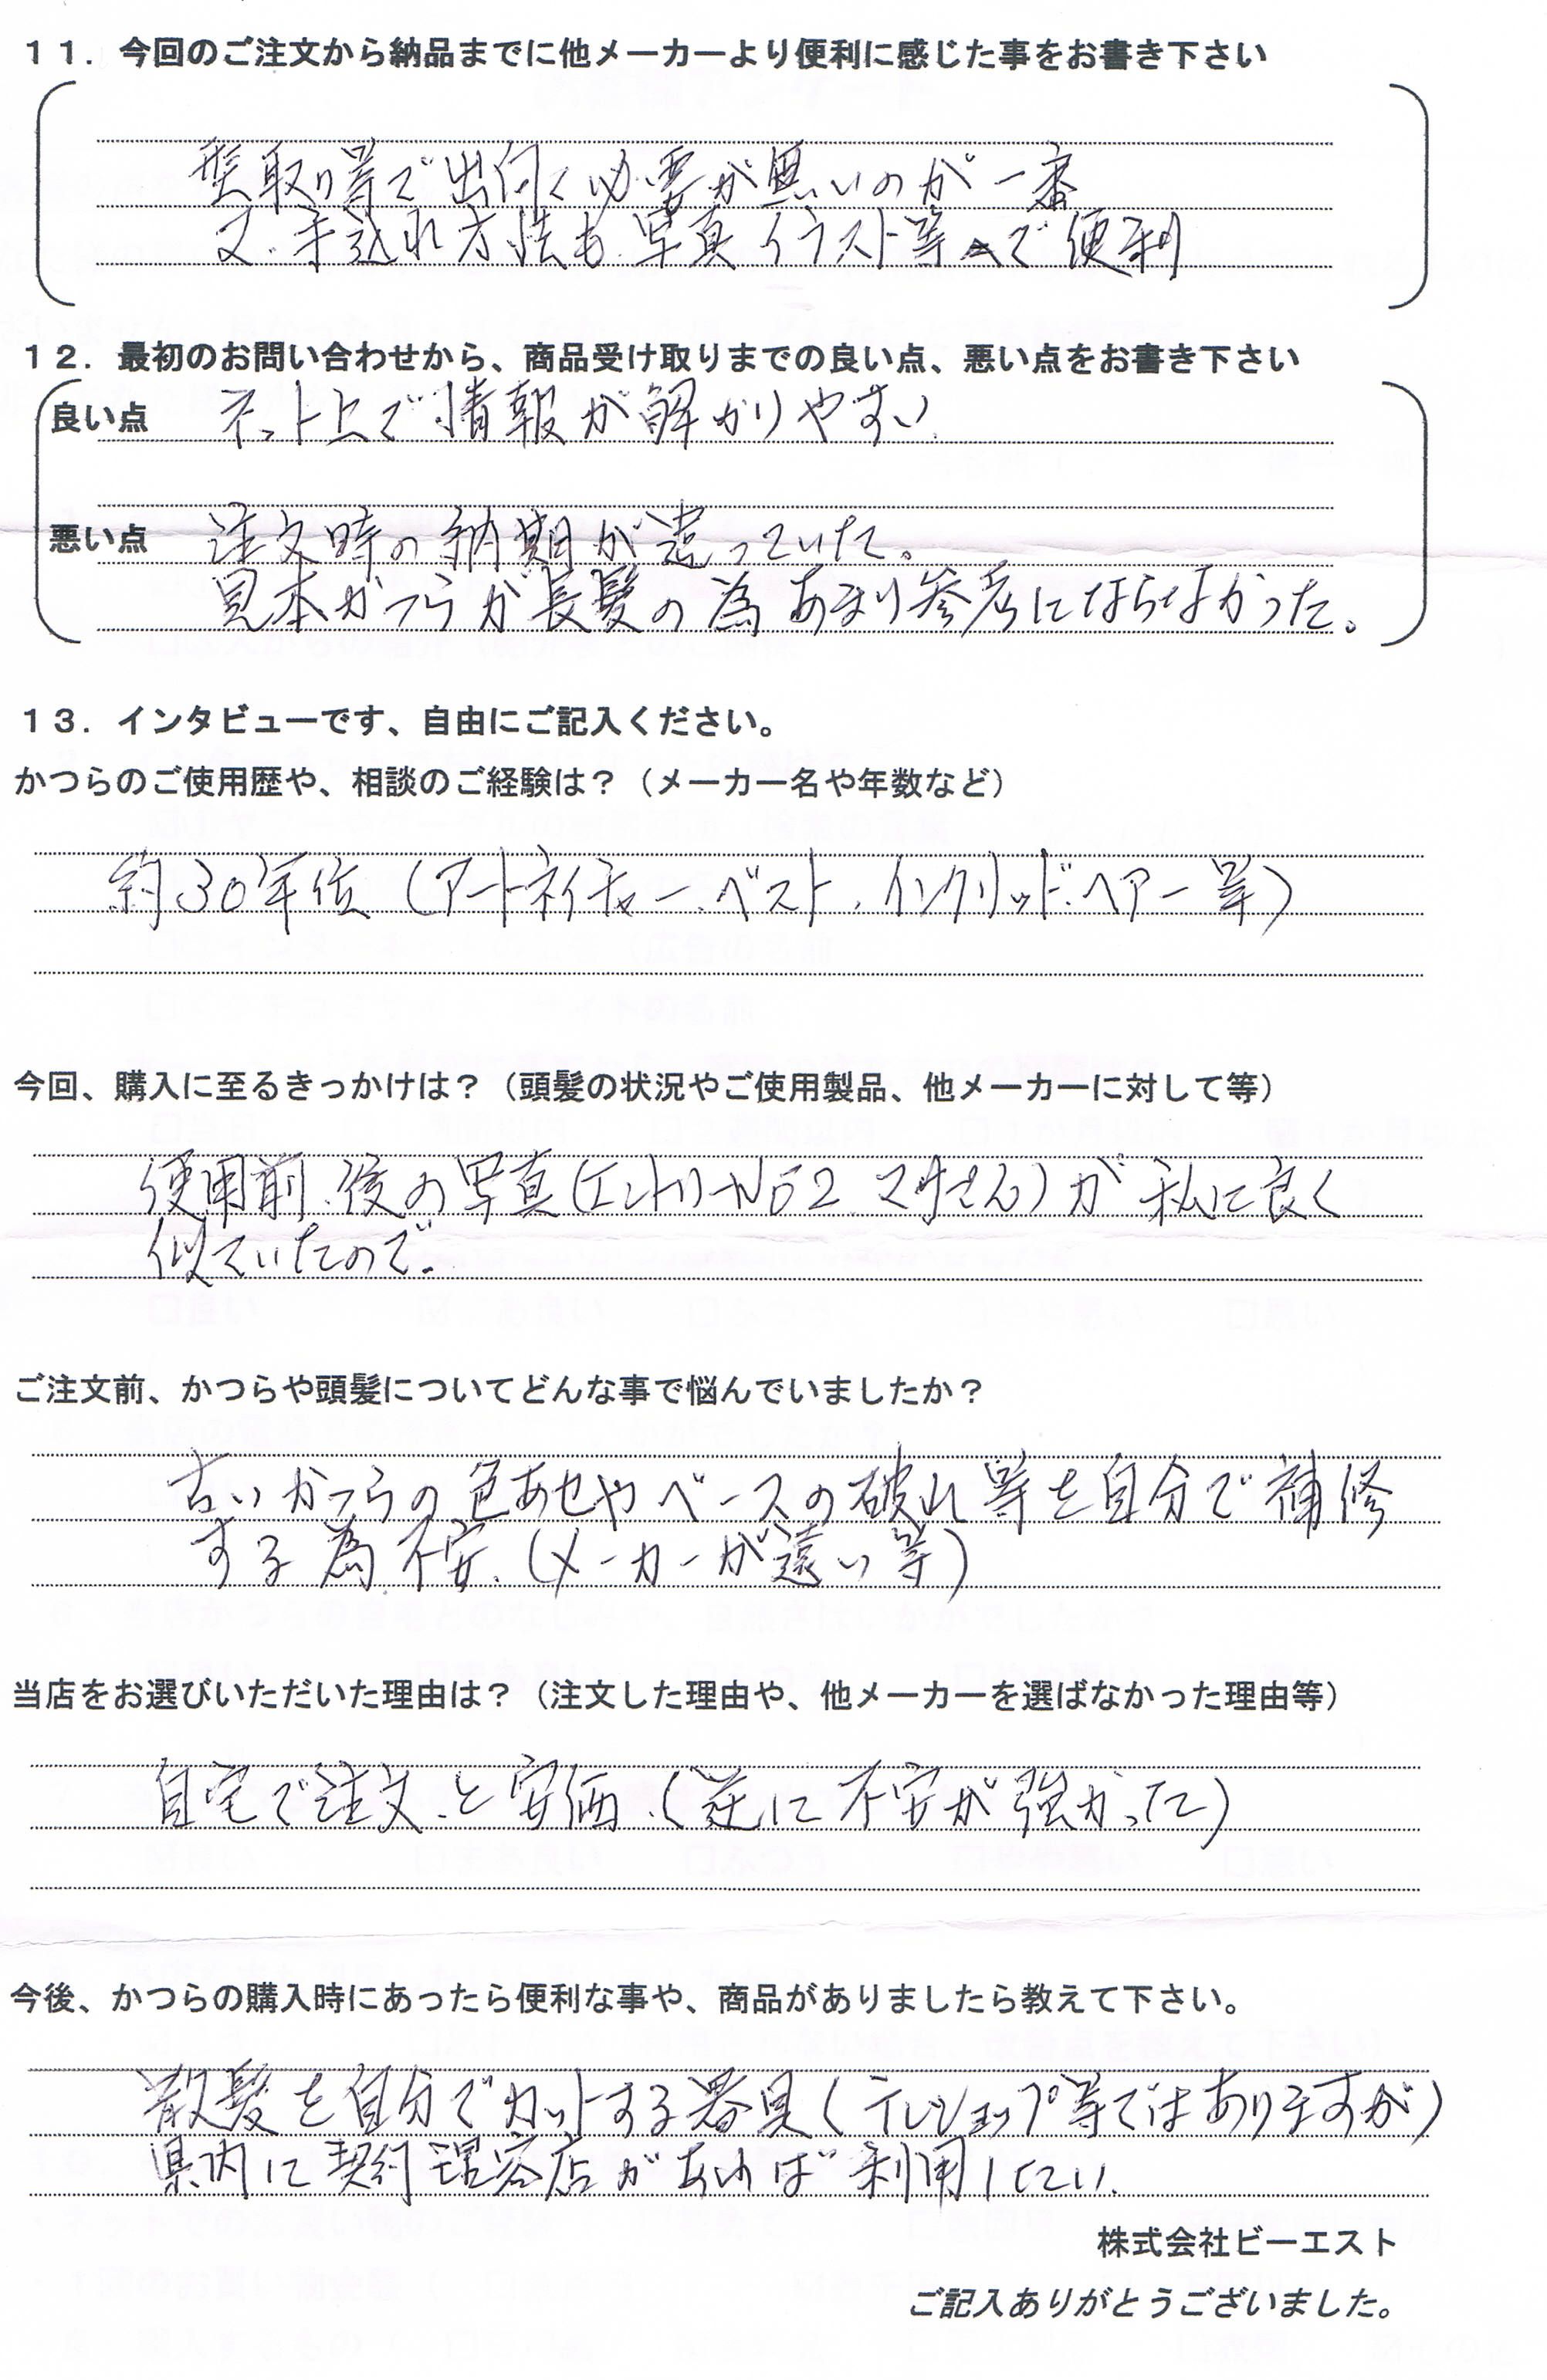 11．今回のご注文から納品までに他メーカーより便利に感じた事をお書き下さい
型取り等で出向く必要が無いのが一番
又、手込れ方法も、写真イラスト等で便利
12．最初のお問い合わせから、商品受け取りまでの良い点、悪い点をお書き下さい
良い点 ネット上で情報が解かりやすい
悪い点 注文時の納期が違っていた。
見本かつらが長髪の為あまり参考にはならなかった。
13．インタビューです、自由にご記入ください。
かつらのご使用歴や、相談のご経験は？（メーカー名や年数など）
約30年位（アートネイチャー、ベスト、イングリッド、ヘアー等）
今回、購入に至るきっかけは？（頭髪の状況やご使用製品、他メーカーに対して等）
使用前、後の写真（エントリーNo2 マサさん）が私に良く
似ていたので。
ご注文前、かつらや頭髪についてどんな事で悩んでいましたか？
古いかつらの色あせやベースの破れ等を自分で補修
する為、不安、（メーカーが遠い等）
当店をお選びいただいた理由は？（注文した理由や、他メーカーを選ばなかった理由等）
自宅で注文、と安価、（逆に不安が強かった）
今後、かつらの購入時にあったら便利な事や、商品がありましたら教えて下さい。
散髪を自分でカットする器具（テレショップ等ではありますが）
県内に契約理容店があれば利用したい、
株式会社ビーエスト
ご記入ありがとうございました。